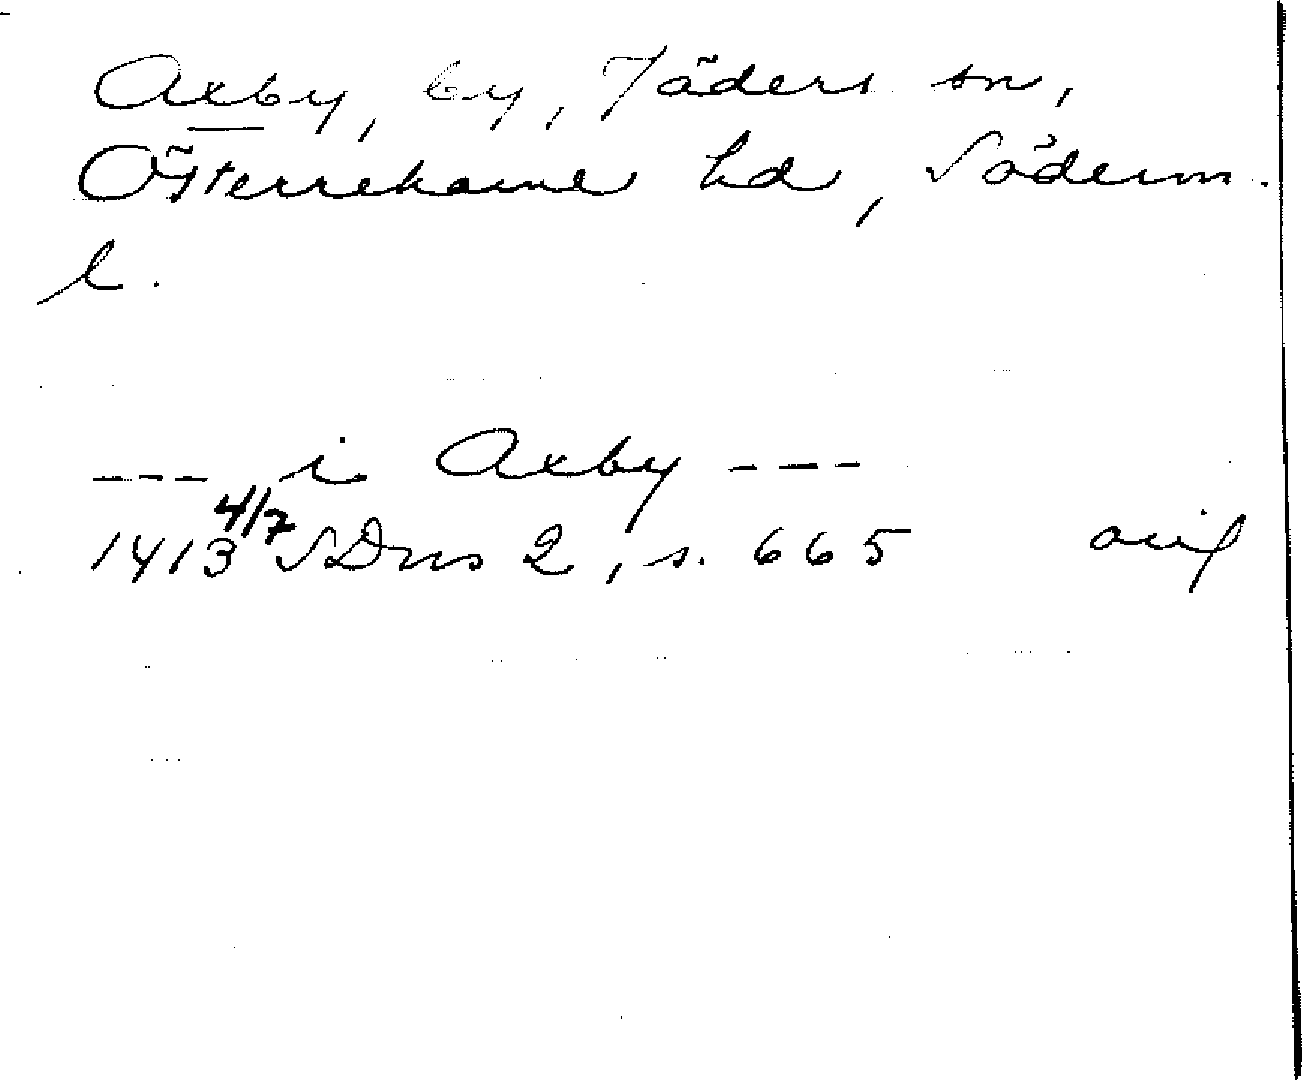 Axby, by, Jäders sn,
Österrekarne hd, Söderm.
l.
--- i Axby ---
1413 4/7 SDns 2, s. 665 avs